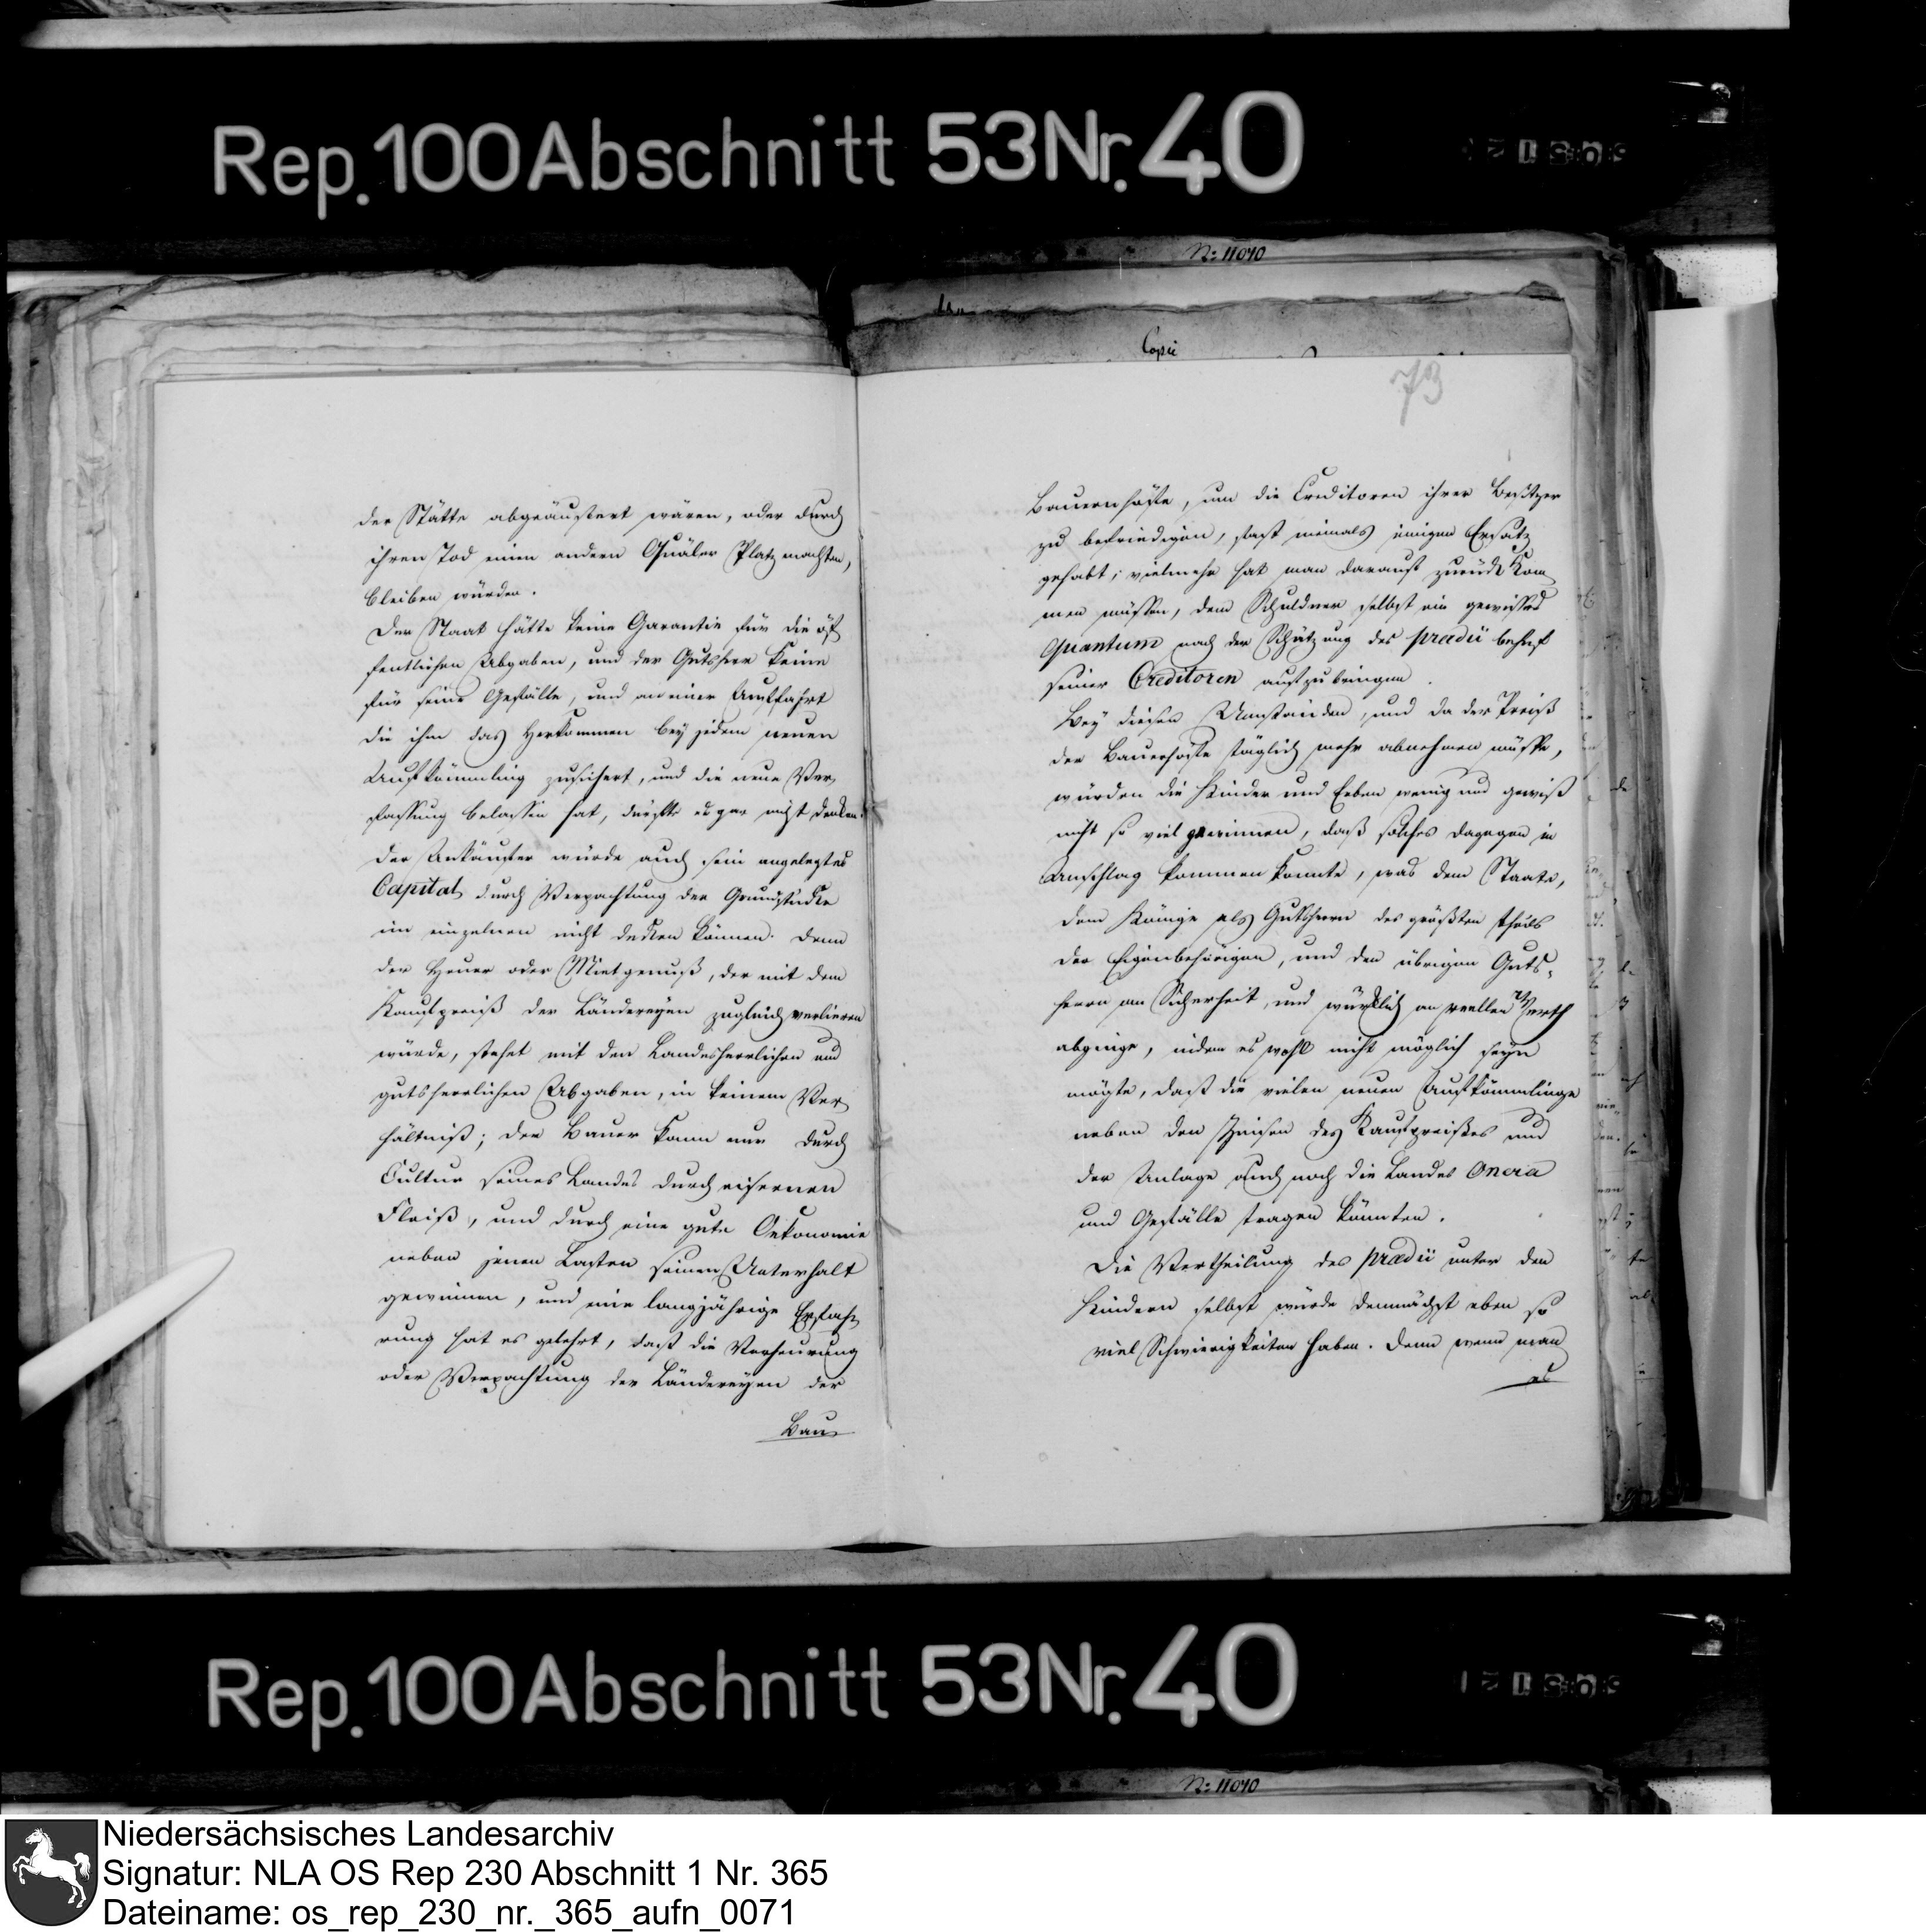 Rep. 100 Abschnitt 53 Nr. 40
N: 11040
Copie
73
der Stätte abgeäußert wären, oder durch
ihren Tod einen andern Quäler Platz machten,
bleiben würden.
Der Staat hätte keine Garantie für die öf
fentlichen Abgaben, und der Gutsherr keine
für seine Gefälle, und an einer Auffahrt
die ihm das Herkommen bey jedem neuen
Aufkömmling zusichert, und die neue Ver
fassung belassen hat, dürfte er gar nicht denken.
Der Ankäufer würde auch sein angelegtes
Capital durch Verpachtung der Grundstücke
im einzelnen nicht decken können. Denn
der Heuer oder Mietgenuß, der mit dem
Kaufpreiß der Ländereyen zugleich verlieren
würde, stehet mit den Landesherrlichen und
gutsherrlichen Abgaben, in keinem Ver
hältniß; der Bauer kann nur durch
Cultur seines Landes durch eisernen
Fleiß, und durch eine gute Oekonomie
neben jenen Lasten seinen Unterhalt
gewinnen, und eine langjährige Erfah
rung hat es gelehrt, daß die Verheurung
oder Verpachtung der Ländereyen der
Bau
Bauernhöfe, um die Creditoren ihrer Besitzer
zu befriedigen, fast niemals einigen Ersatz
gehabt; vielmehr hat man darauf zurück kom
men müssen, dem Schuldner selbst ein gewisses
Quantum nach der Schätzung des praedii behuf
seiner Creditoren aufzubringen.
Bey diesen Umständen, und da der Preiß
der Bauerhöfe täglich mehr abnehmen müßte,
würden die Kinder und Erben wenig und gewiß
nicht so viel gewinnen, daß solches dagegen in
Anschlag kommen könnte, was dem Staate,
dem Könige als Gutsherrn des größten theils
der Eigenbehörigen, und den übrigen Guts-
herrn an Sicherheit, und würklich an reellen Werth
abginge, indem es wohl nicht möglich seyn
mögte, daß die vielen neuen Aufkömmlinge
neben den Zinsen des Kaufpreißes und
der Anlage auch noch die Landes Onera
und Gefälle tragen könnten.
Die Vertheilung des praedii unter den
Kindern selbst würde demnächst eben so
viel Schwierigkeiten haben. Denn wenn man
es
Rep. 100 Abschnitt 53 Nr. 40
N: 11040
Niedersächsisches Landesarchiv
Signatur: NLA OS Rep 230 Abschnitt 1 Nr. 365
Dateiname: os_rep_230_nr._365_aufn_0071